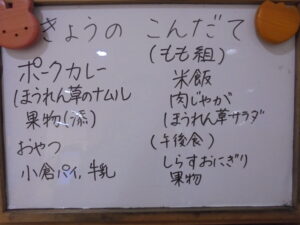 きょうの こんだて
ポークカレー
ほうれん草のナムル
果物(添)
おやつ
小倉パイ,牛乳
(もも組)
米飯
肉じゃが
ほうれん草サラダ
(午後食)
しらすおにぎり
果物